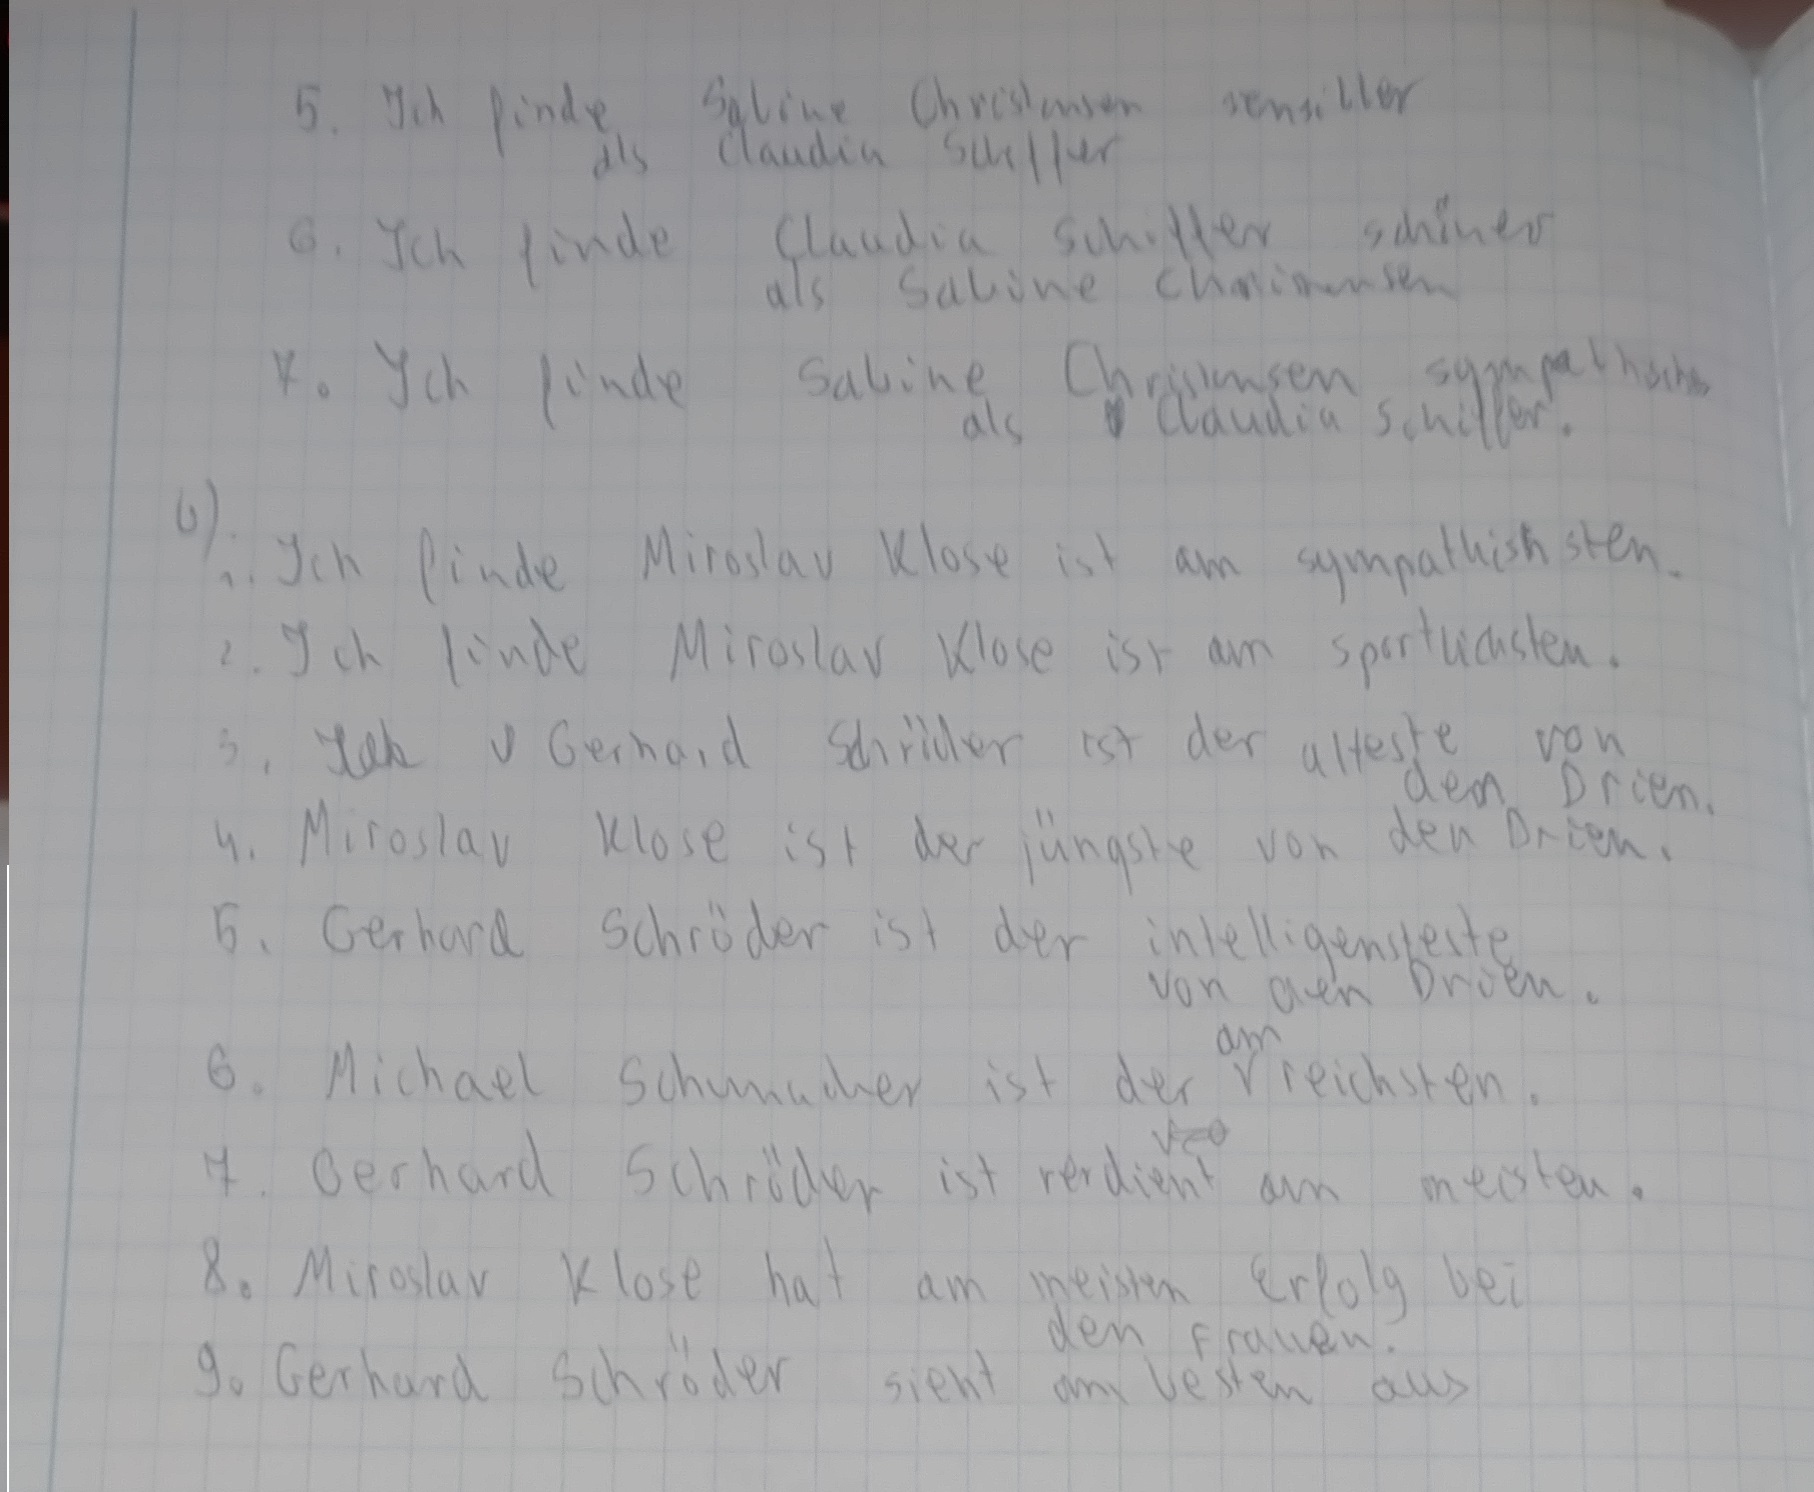 5. Ich finde Sabine Christensen sensibler
als Claudia Schiffer
6. Ich finde Claudia Schiffer schöner
als Sabine
7. Ich finde Sabine Christensen
als Claudia Schiffer.
b)
1. Ich finde Miroslav Klose ist am sympathishsten.
2. Ich finde Miroslav Klose ist am sportlichsten.
3. Gerhard Schröder ist der alteste von
den Drien.
4. Miroslav Klose ist der jüngste von den Drien.
5. Gerhard Schröder ist der intelligensteste
von den Drien.
am
6. Michael Schumacher ist der reichsten.
7. Gerhard Schröder ist verdient am meisten.
8. Miroslav Klose hat am meisten Erfolg bei
den Frauen.
9. Gerhard Schröder sieht am besten aus